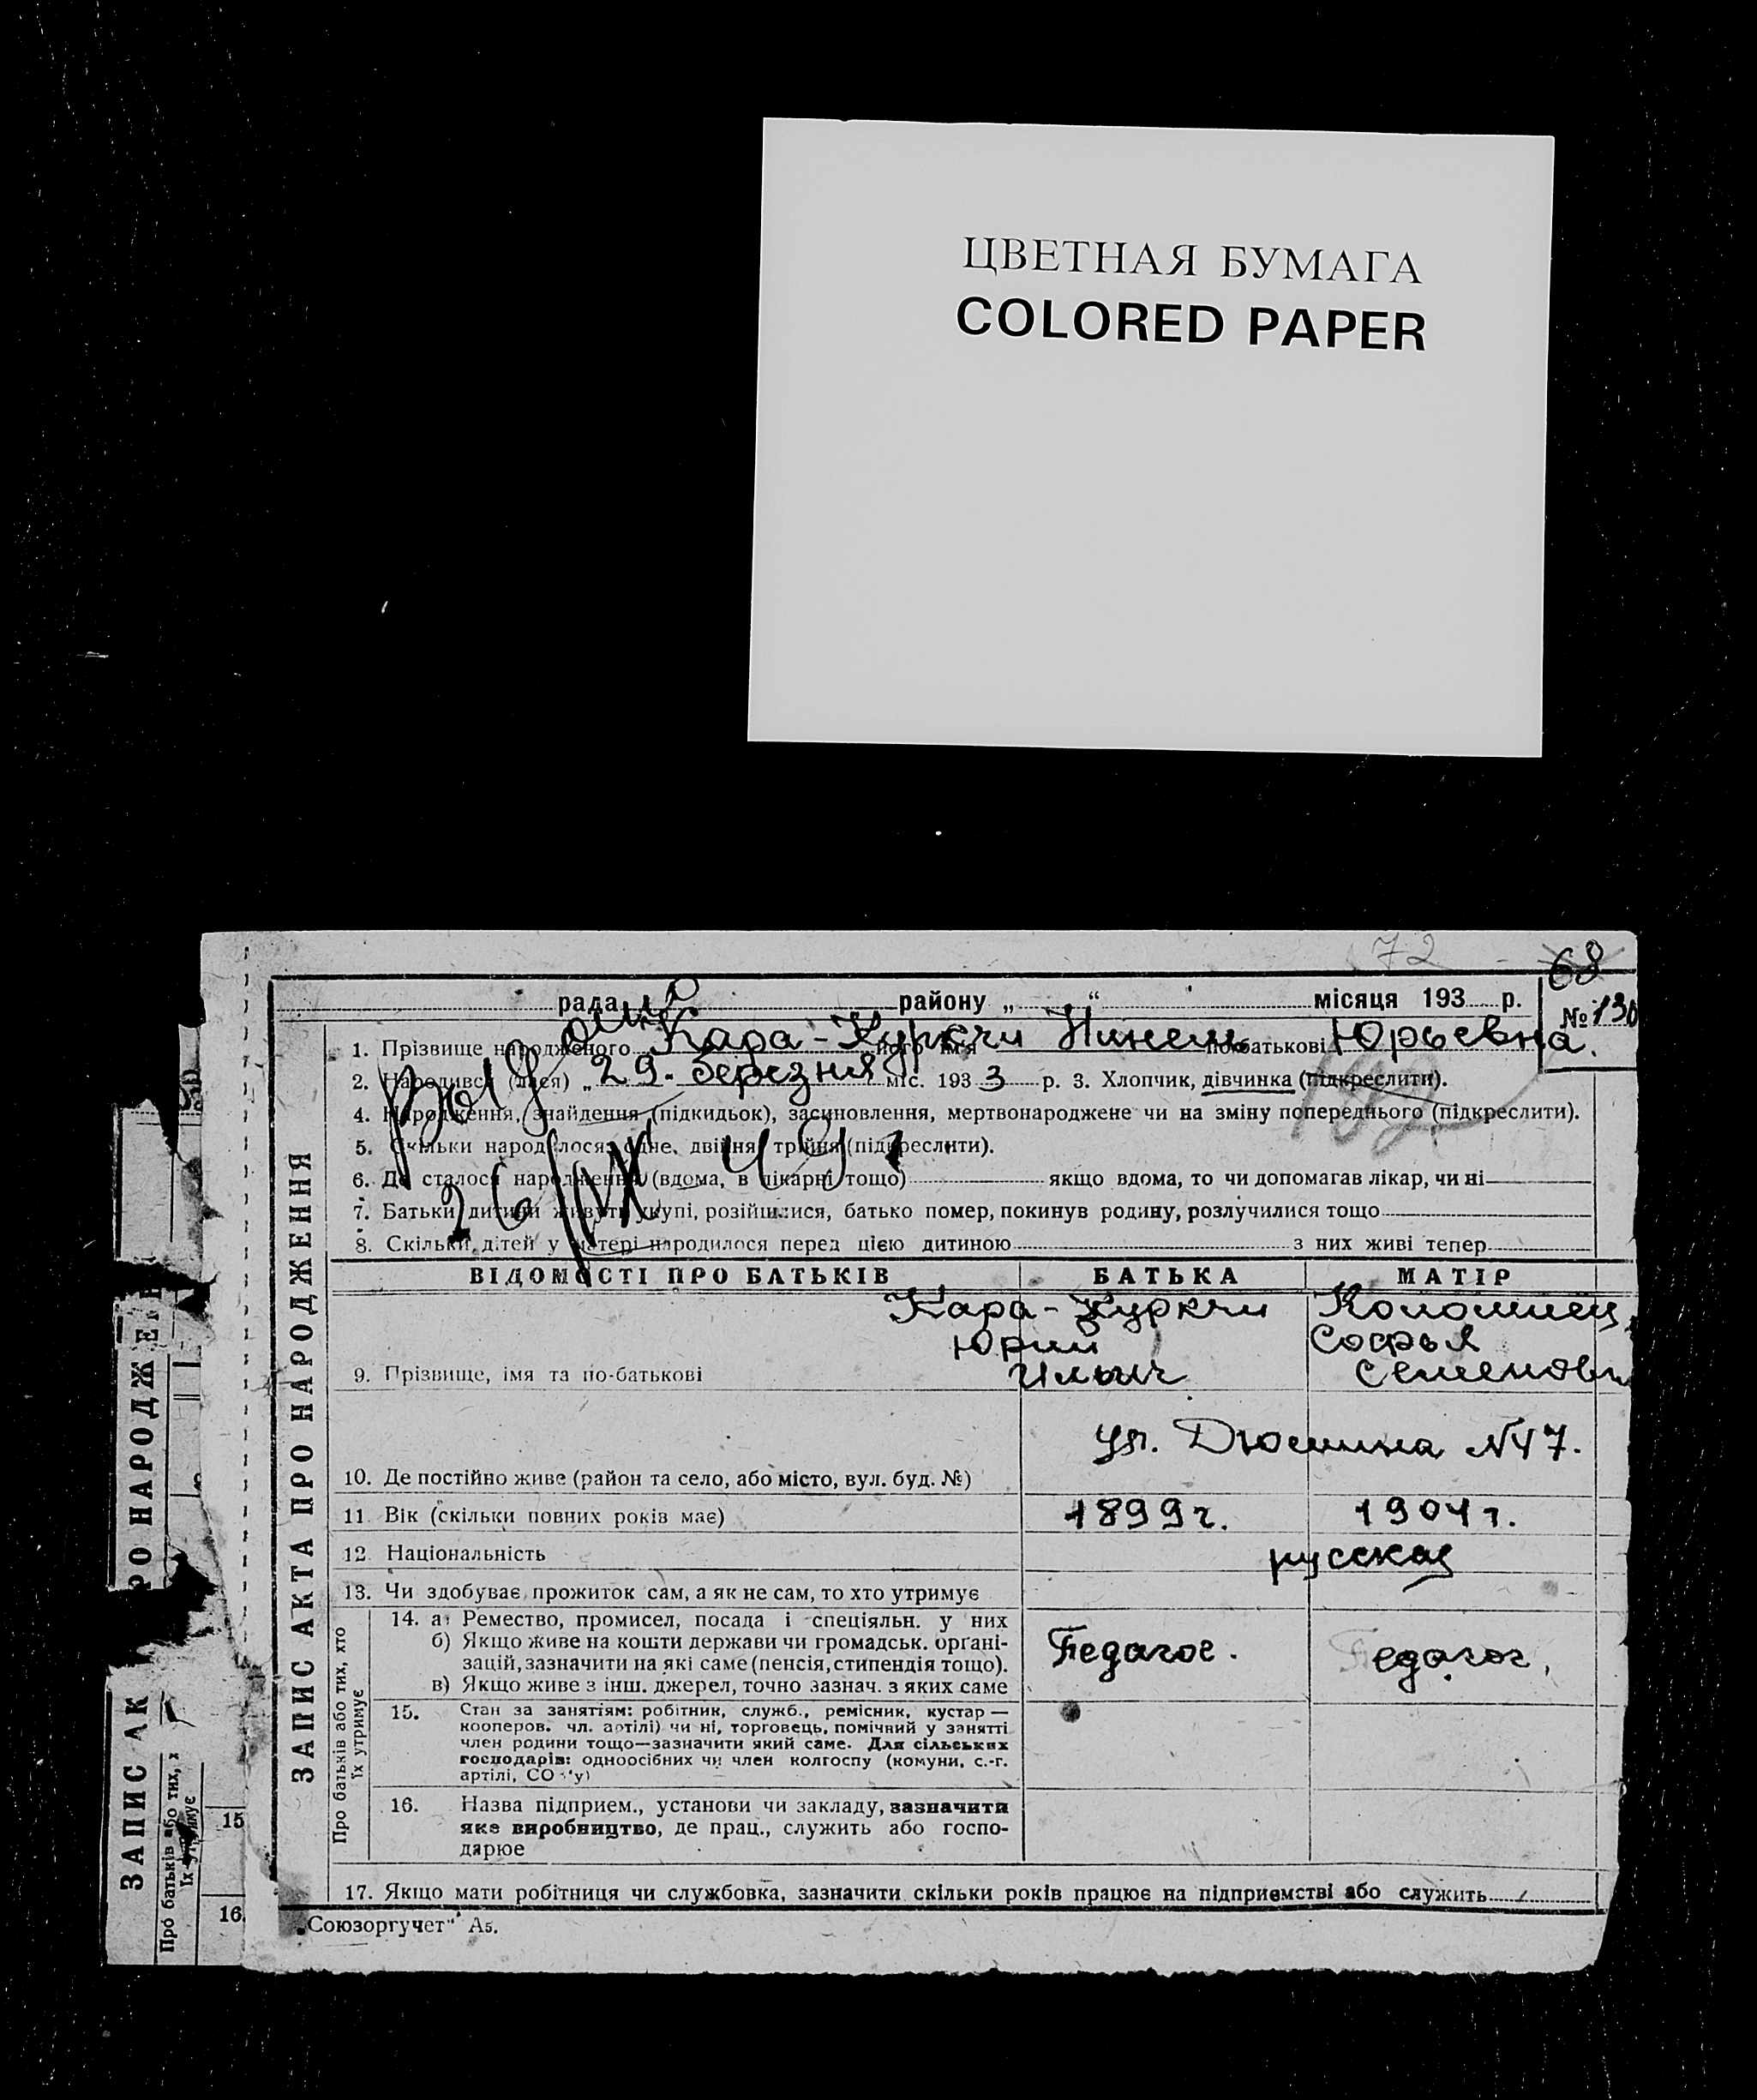 ЦВЕТНАЯ БУМАГА
COLORED PAPER
72
68
рада района району „ “ місяця 193 р.
№ 130
1. Прізвище народженого Кара-Куркчи його ім'я Нинель по батькові Юрьевна.
2. Народився (лася) „ 29. березня міс. 193 3 р. 3. Хлопчик, дівчинка (підкреслити).
4. Народження, знайдення (підкидьок), засиновлення, мертвонароджене чи на зміну попереднього (підкреслити).
5. Скільки народилося: одне, двійня, трійня (підкреслити).
6. Де сталося народження (вдома, в лікарні тощо) якщо вдома, то чи допомагав лікар, чи ні
7. Батьки дитини живуть укупі, розійшлися, батько помер, покинув родину, розлучилися тощо
8. Скільки дітей у матері народилося перед цією дитиною з них живі тепер
26/IX
ВІДОМОСТІ ПРО БАТЬКІВ БАТЬКА МАТІР
Кара-Куркчи Коломиец
Юрий Софья
9. Прізвище, імя та по-батькові Ильич Семеновн
10. Де постійно живе (район та село, або місто, вул. буд. №) ул. Дюмина №47.
11. Вік (скільки повних років має) 1899г. 1904г.
12. Національність русская
13. Чи здобуває прожиток сам, а як не сам, то хто утримує
14. а) Ремество, промисел, посада і спеціяльн. у них
б) Якщо живе на кошти держави чи громадськ. організацій, зазначити на які саме (пенсія, стипендія тощо). Педагог. Педагог.
в) Якщо живе з інш. джерел, точно зазнач. з яких саме
15. Стан за заняттям: робітник, служб., ремісник, кустар—
кооперов. чл. артілі) чи ні, торговець, помічний у занятті
член родини тощо—зазначити який саме. Для сільських
господарів: одноосібних чи член колгоспу (комуни, с.-г.
артілі,
16. Назва підприєм., установи чи закладу, зазначити
яке виробництво, де прац., служить або госпо-
дарює
17. Якщо мати робітниця чи службовка, зазначити скільки років працює на підприємстві або служить
„Союзоргучет" А5.
ЗАПИС АКТА ПРО НАРОДЖЕННЯ
Про батьків або тих, хто
їх утримує
РО НАРОДЖЕН
ЗАПИС АК
Про батьків або тих, х
їх утримує
15
16.